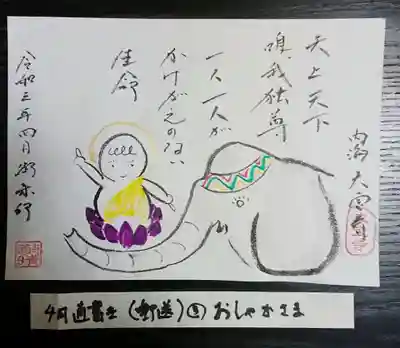 天上天下
唯我独尊
一人一人が
かけがえのない
生命
令和三年四月
4月直書き（郵送）⑤おしゃかさま